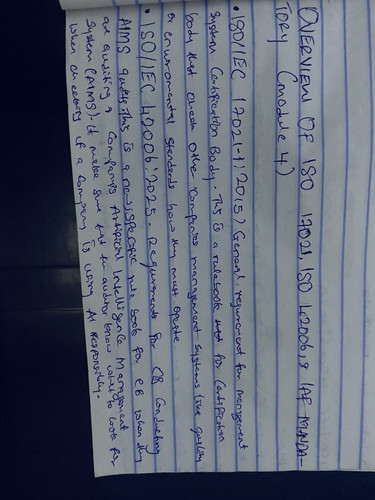 OVERVIEW OF ISO 17021, ISO 42006, & IAF MANDA-
TORY (module 4)
• ISO/IEC 17021-1:2015) General requirement for management
System Certification Body. This is a rulebook that for certification
body that check other companies management systems like quality
or environmental standards how they must operate
• ISO/IEC 42006:2025. Requirements for CB Conducting
AIMS audits: This is a new specific rule book for CB when they
are auditing a Company's Artificial Intelligence Management
System (AIMS). It make sure that the auditor know what to look for
when checking if a company is using AI responsibly.